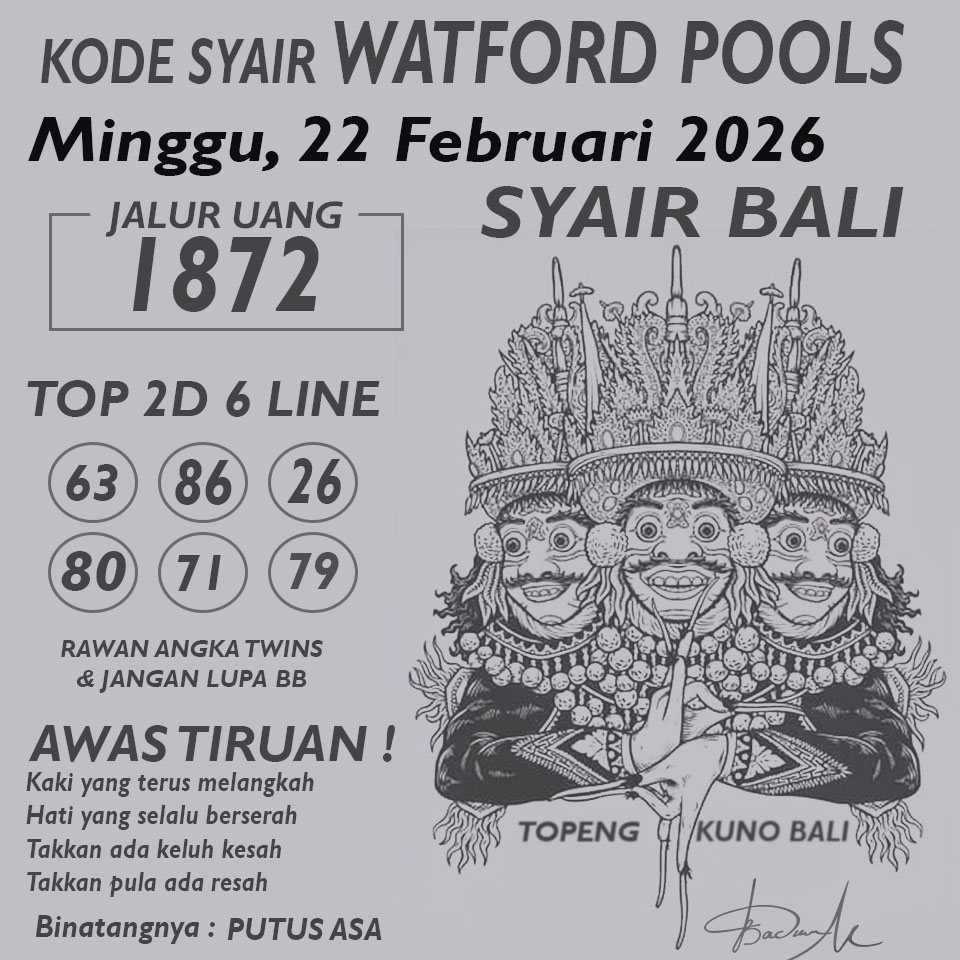 KODE SYAIR WATFORD POOLS
Minggu, 22 Februari 2026
SYAIR BALI
JALUR UANG
1872
TOP 2D 6 LINE
63 86 26
80 71 79
RAWAN ANGKA TWINS
& JANGAN LUPA BB
AWAS TIRUAN !
Kaki yang terus melangkah
Hati yang selalu berserah
Takkan ada keluh kesah
Takkan pula ada resah
Binatangnya : PUTUS ASA
TOPENG KUNO BALI